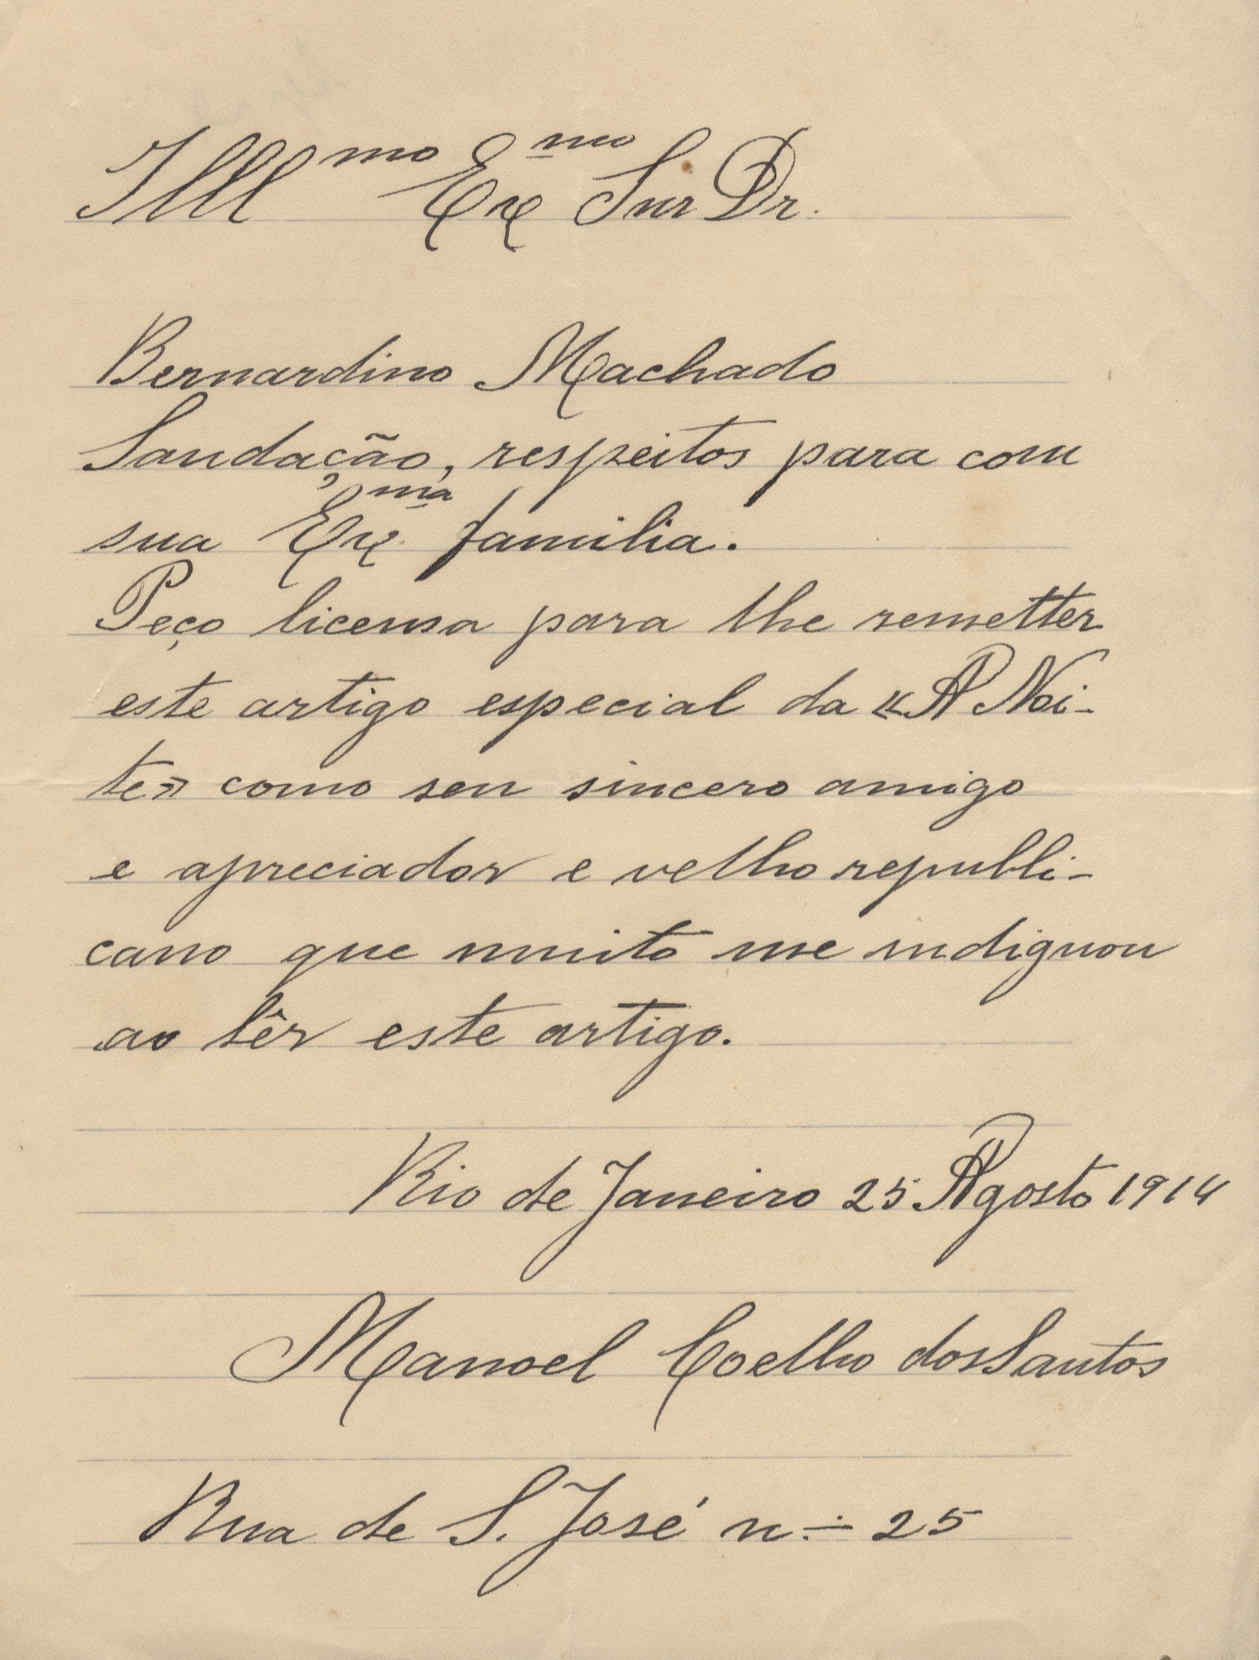 Illmo Exmo Snr Dr.
Bernardino Machado
Saudação, respeitos para com
sua Exma familia.
Peço licensa para lhe remetter
este artigo especial da «A Noi-
te» como seu sincero amigo
e apreciador e velho republi-
cano que muito me indignou
ao lêr este artigo.
Rio de Janeiro 25 Agosto 1914
Manoel Coelho dos Santos
Rua de S. José n.- 25